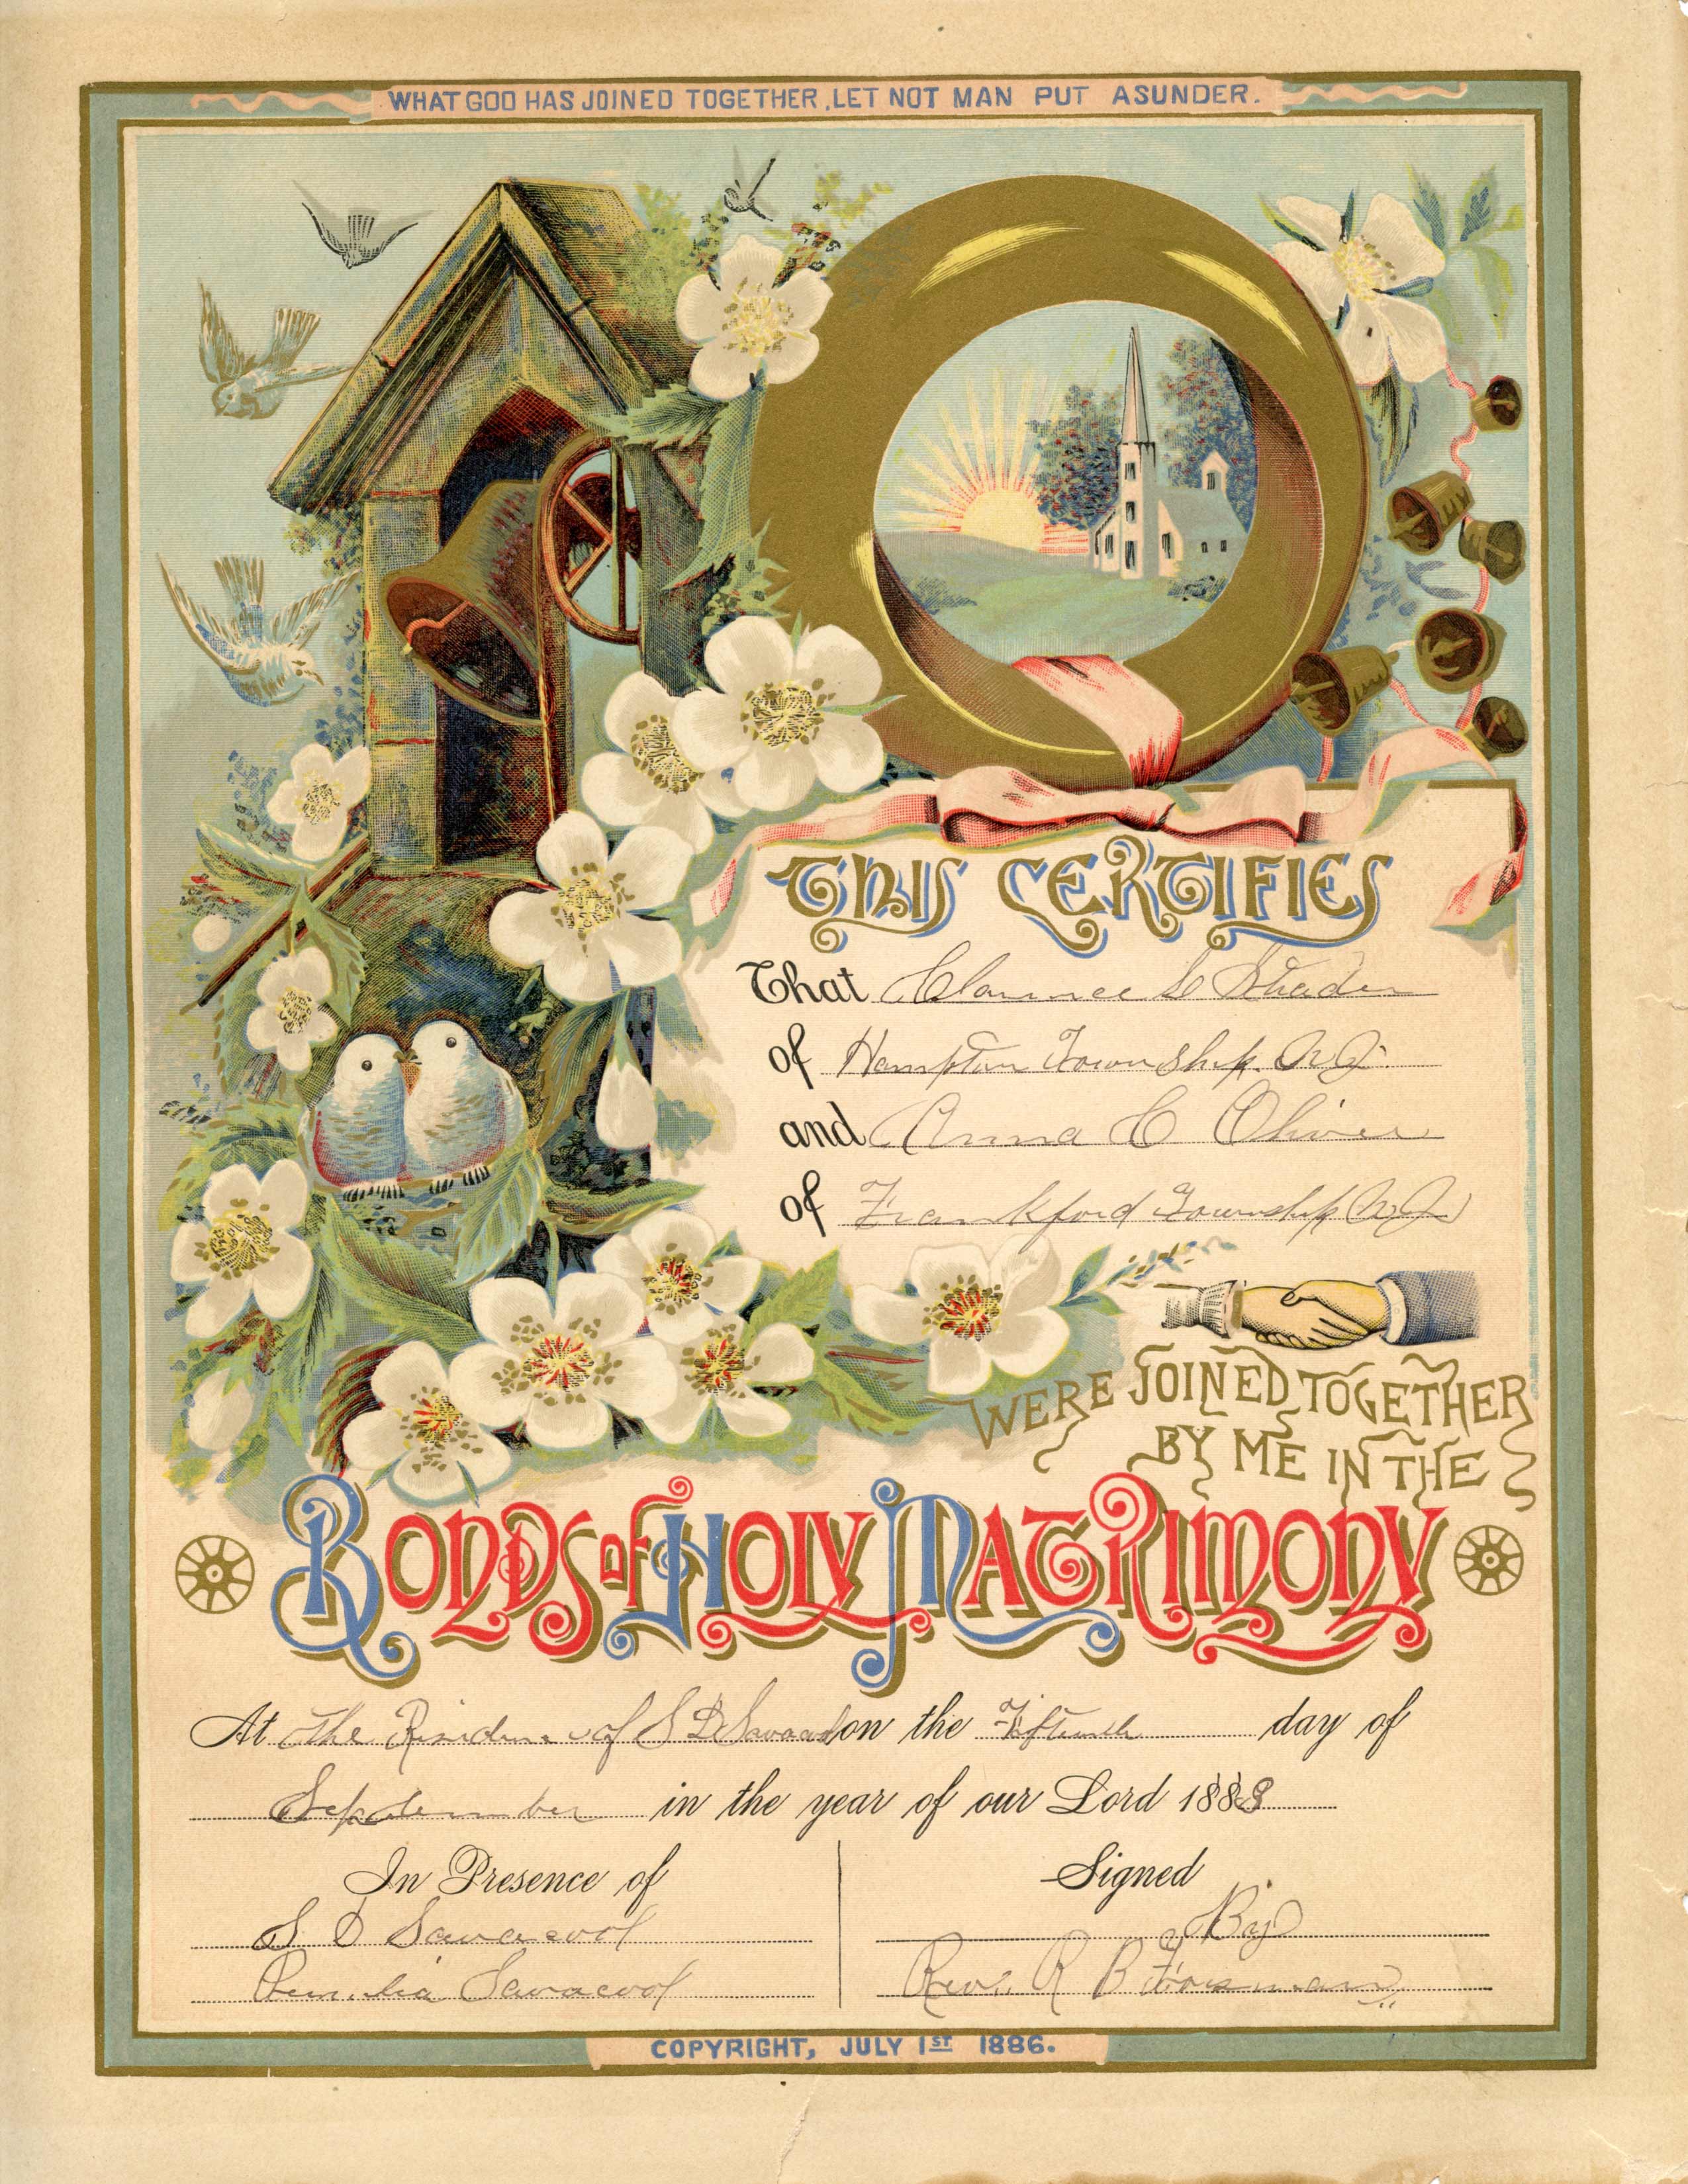 WHAT GOD HAS JOINED TOGETHER, LET NOT MAN PUT ASUNDER.
THIS CERTIFIES
That Clarence S Strader
of Hampton Township. N J.
and Anna C Oliver
of Frankford Township N J
WERE JOINED TOGETHER
BY ME IN THE
BONDS OF HOLY MATRIMONY
At the Residence of S D on the Fifteenth day of
September in the year of our Lord 1888
In Presence of
Signed
S D Savacool
By
Savacool
Rev. R B Forsman
COPYRIGHT, JULY 1ST 1886.